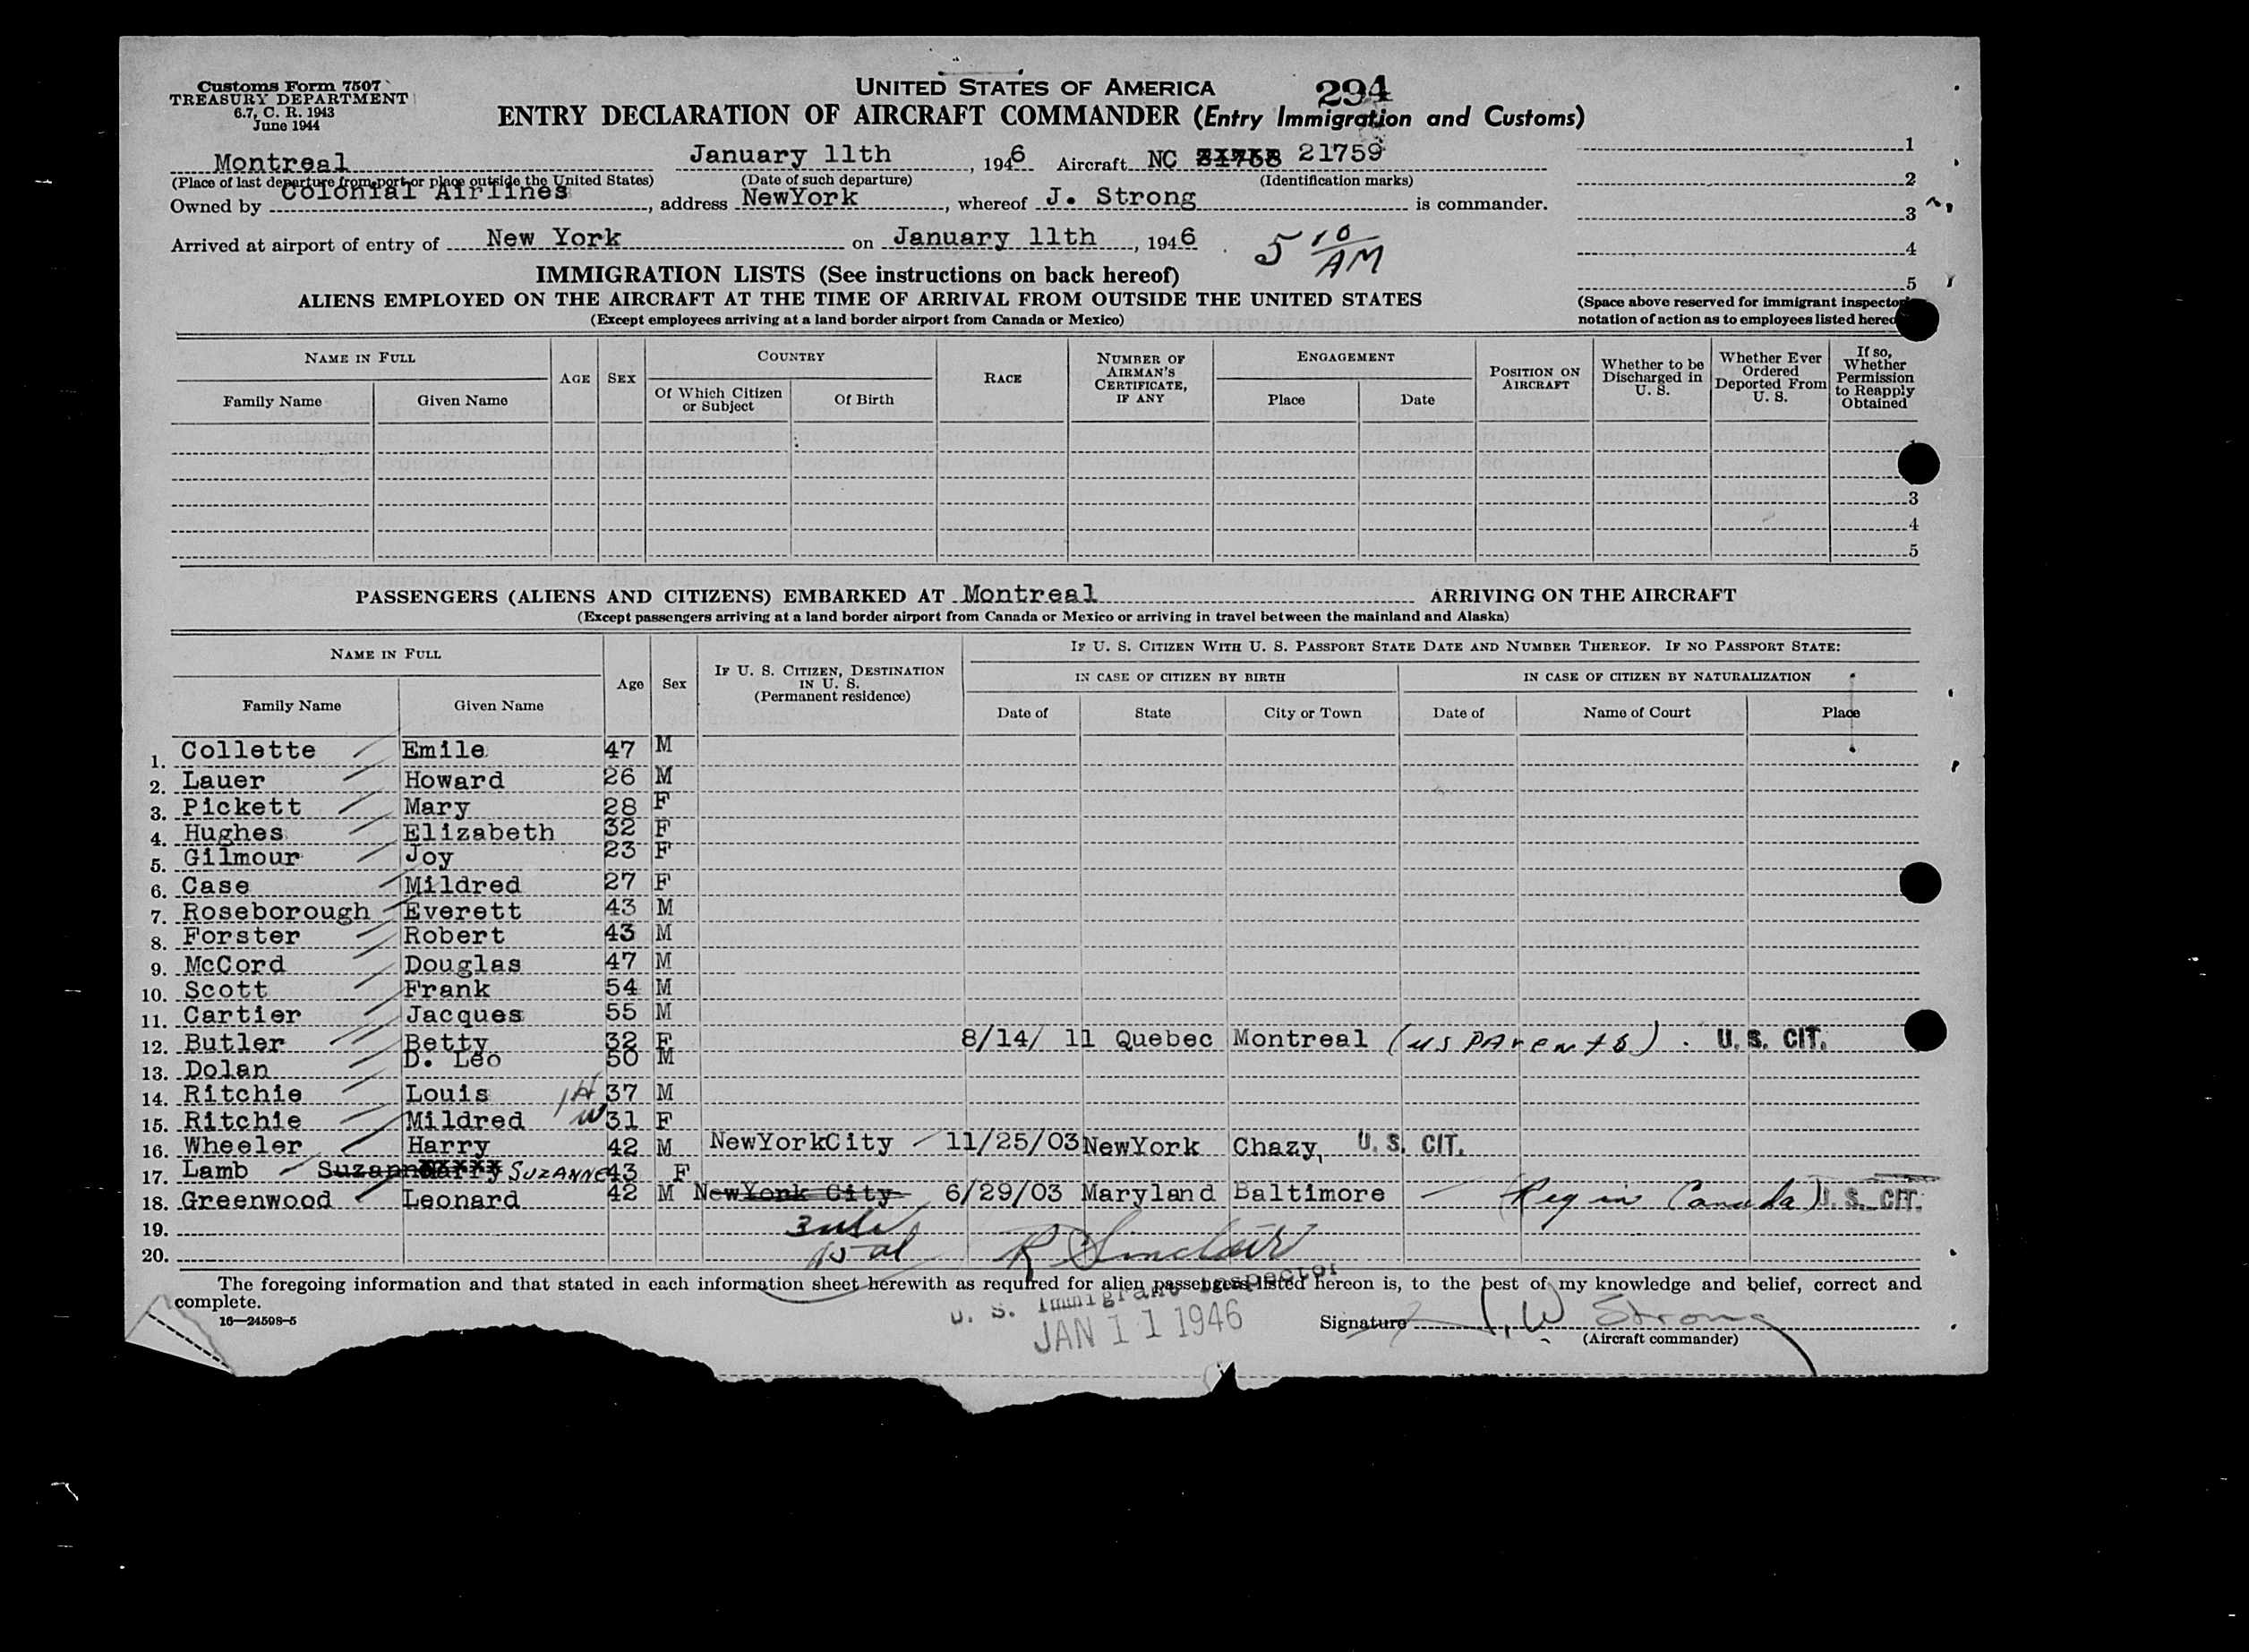 Customs Form 7507
TREASURY DEPARTMENT
6.7, C. R. 1943
June 1944
UNITED STATES OF AMERICA
294
ENTRY DECLARATION OF AIRCRAFT COMMANDER (Entry Immigration and Customs)
Montreal January 11th, 1946 Aircraft NC 21759
(Place of last departure from port or place outside the United States) (Date of such departure) (Identification marks)
Owned by Colonial Airlines, address NewYork, whereof J. Strong is commander.
Arrived at airport of entry of New York on January 11th, 1946. 5 10 AM
1
2
3
4
5
(Space above reserved for immigrant inspector
notation of action as to employees listed hereo
IMMIGRATION LISTS (See instructions on back hereof)
ALIENS EMPLOYED ON THE AIRCRAFT AT THE TIME OF ARRIVAL FROM OUTSIDE THE UNITED STATES
(Except employees arriving at a land border airport from Canada or Mexico)
NAME IN FULL
Family Name Given Name
AGE SEX
COUNTRY
Of Which Citizen or Subject Of Birth
RACE
NUMBER OF AIRMAN'S CERTIFICATE, IF ANY
ENGAGEMENT
Place Date
POSITION ON AIRCRAFT
Whether to be Discharged in U. S.
Whether Ever Ordered Deported From U. S.
If so, Whether Permission to Reapply Obtained
3
4
5
PASSENGERS (ALIENS AND CITIZENS) EMBARKED AT Montreal ARRIVING ON THE AIRCRAFT
(Except passengers arriving at a land border airport from Canada or Mexico or arriving in travel between the mainland and Alaska)
NAME IN FULL
Family Name Given Name
Age Sex
IF U. S. CITIZEN, DESTINATION IN U. S. (Permanent residence)
IF U. S. CITIZEN WITH U. S. PASSPORT STATE DATE AND NUMBER THEREOF. IF NO PASSPORT STATE:
IN CASE OF CITIZEN BY BIRTH IN CASE OF CITIZEN BY NATURALIZATION
Date of State City or Town Date of Name of Court Place
1. Collette Emile 47 M
2. Lauer Howard 26 M
3. Pickett Mary 28 F
4. Hughes Elizabeth 32 F
5. Gilmour Joy 23 F
6. Case Mildred 27 F
7. Roseborough Everett 43 M
8. Forster Robert 43 M
9. McCord Douglas 47 M
10. Scott Frank 54 M
11. Cartier Jacques 55 M
12. Butler Betty 32 F 8/14/ 11 Quebec Montreal (US PArents). U. S. CIT.
13. Dolan D. Leo 50 M
14. Ritchie Louis H 37 M
15. Ritchie Mildred W 31 F
16. Wheeler Harry 42 M NewYorkCity 11/25/03 NewYork Chazy, U. S. CIT.
17. Lamb Suzanne SUZANNE 43 F
18. Greenwood Leonard 42 M NewYork City 6/29/03 Maryland Baltimore (Reg in Canada) U. S. CIT.
19.
20. 15 al R Sinclair
The foregoing information and that stated in each information sheet herewith as required for alien passengers listed hereon is, to the best of my knowledge and belief, correct and
complete.
U. S. Immigrant Inspector
JAN 11 1946
16—24598-5
Signature J. W Strong
(Aircraft commander)